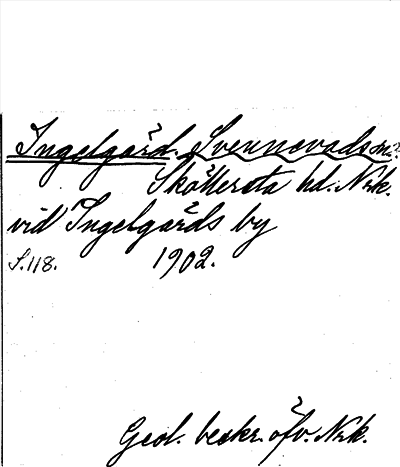 Ingelgård. Svennevads sn.
Sköllersta hd. Nrk.
vid Ingelgårds by
S. 118. 1902.
Geol. beskr. öfv. Nrk.